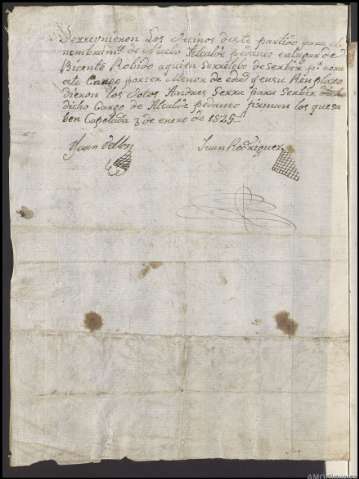 Sereunieron Los Vecinos deste partido para el
nombramto de nuebo Alcalde pedaneo enlugar de
Bicente Robido aquien Serrelebo de Serbir
este Cargo porser Menor de edad y ensu Rénplazo
dieron los Votos Andres Serra para Serbir
dicho Cargo de Alcalde pedaneo firman los que sa
ben Capotada 3 de enero de 1825
Juan Rodriguez